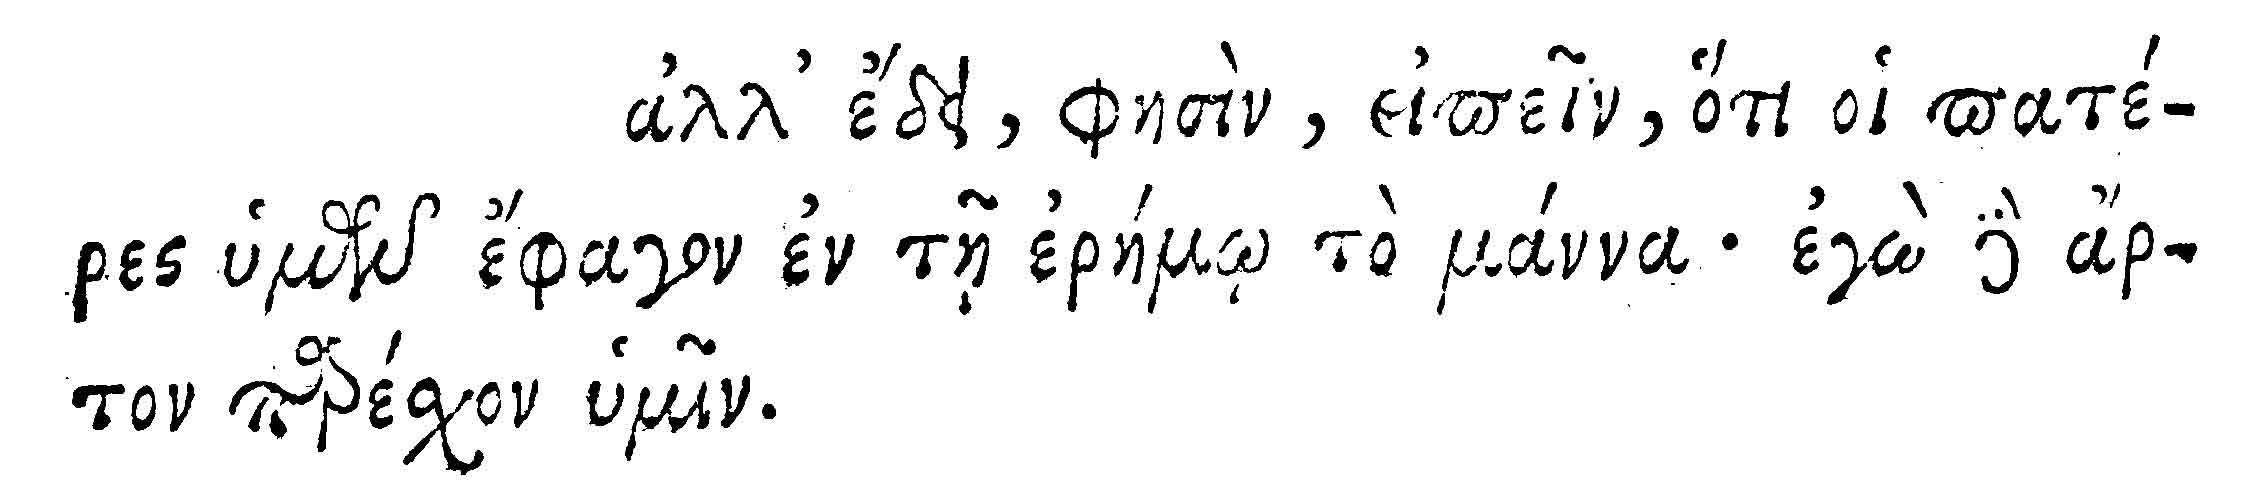 ἀλλ᾽ ἔδει, φησὶν, εἰπεῖν, ὅτι οἱ πατέ-
ρες ὑμῶν ἔφαγον ἐν τῇ ἐρήμῳ τὸ μάννα· ἐγὼ δὲ ἄρ-
τον παρέσχον ὑμῖν.